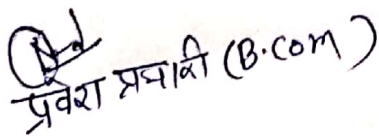 प्रवेश प्रभारी (B.com)